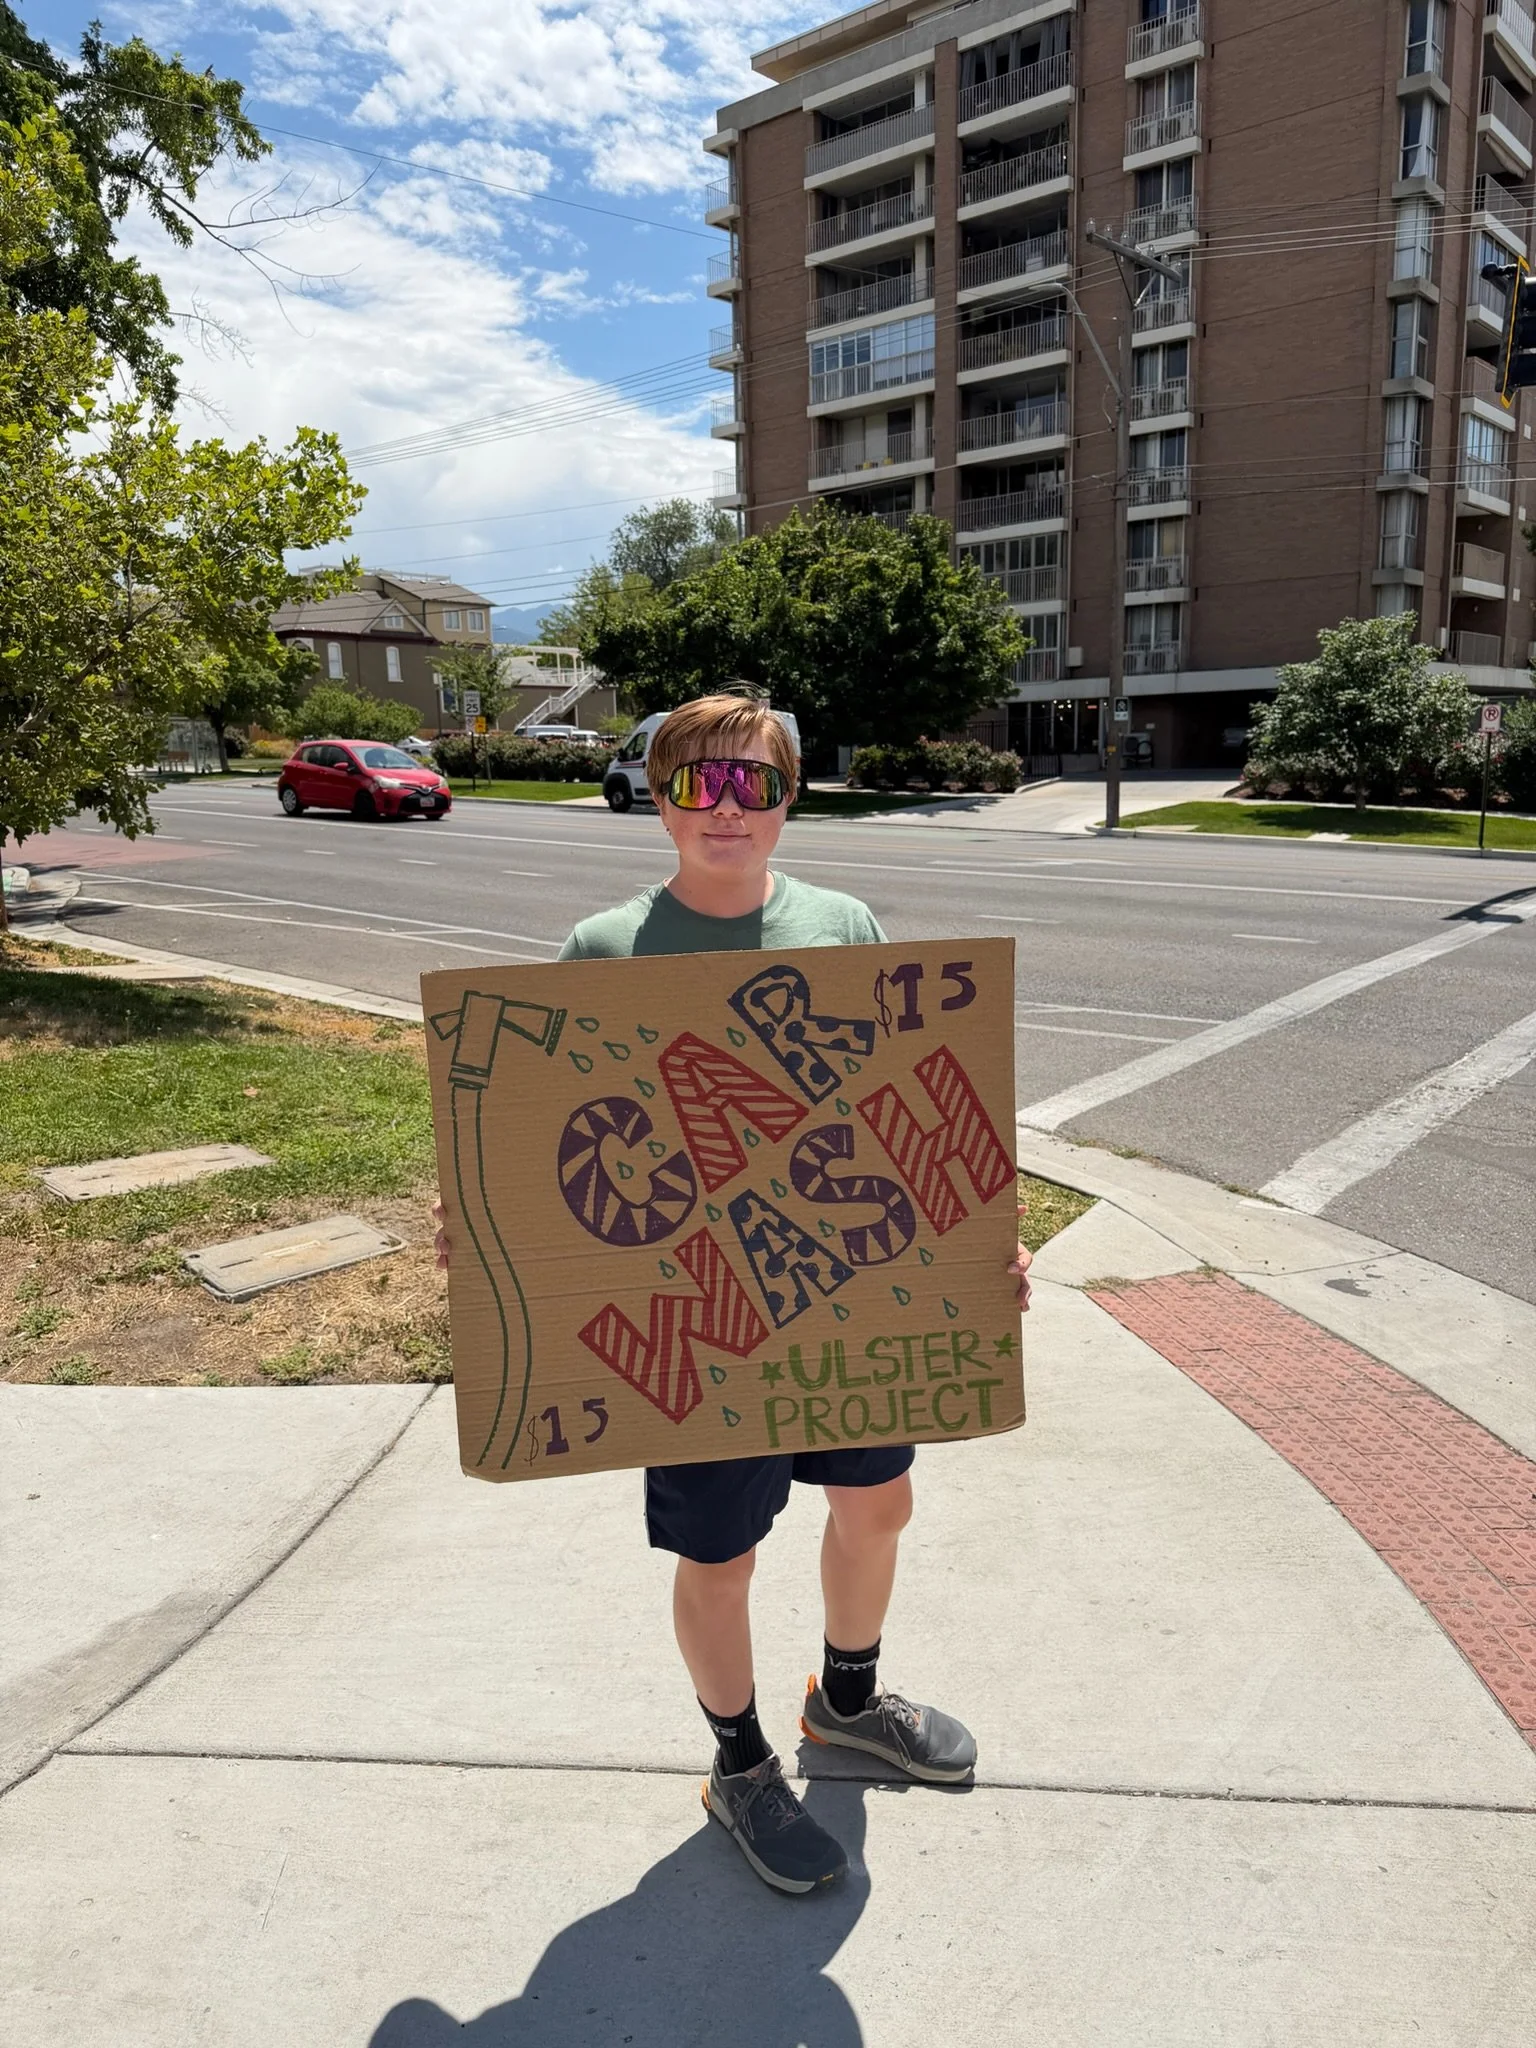 $15
CAR
WASH
$15
*ULSTER*
PROJECT
25
VANS